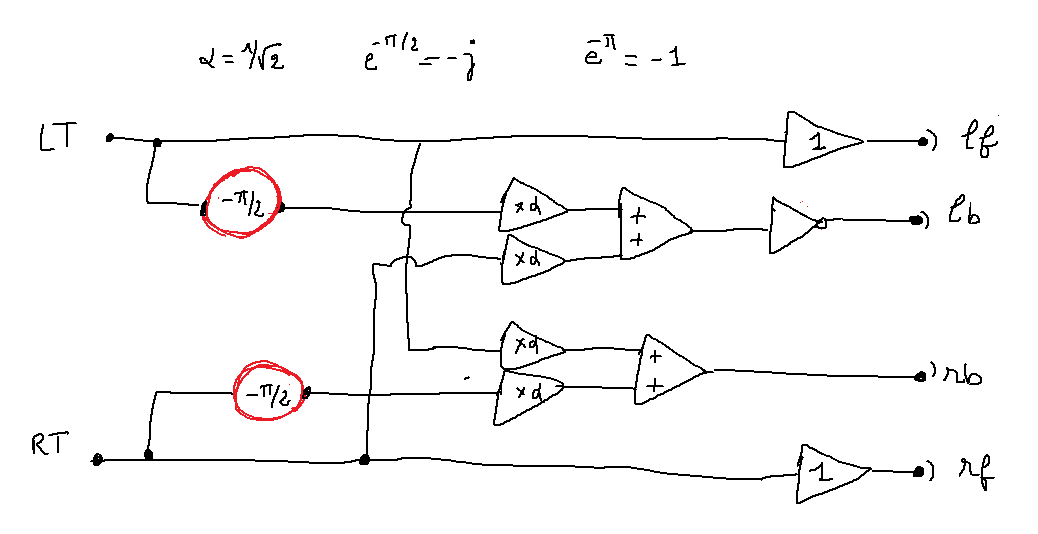 α = 1/√2 e^-π/2 = -j e^-π = -1
LT 1 lf
-π/2 ×α + lb
×α +
×α + rb
-π/2 ×α +
RT 1 rf